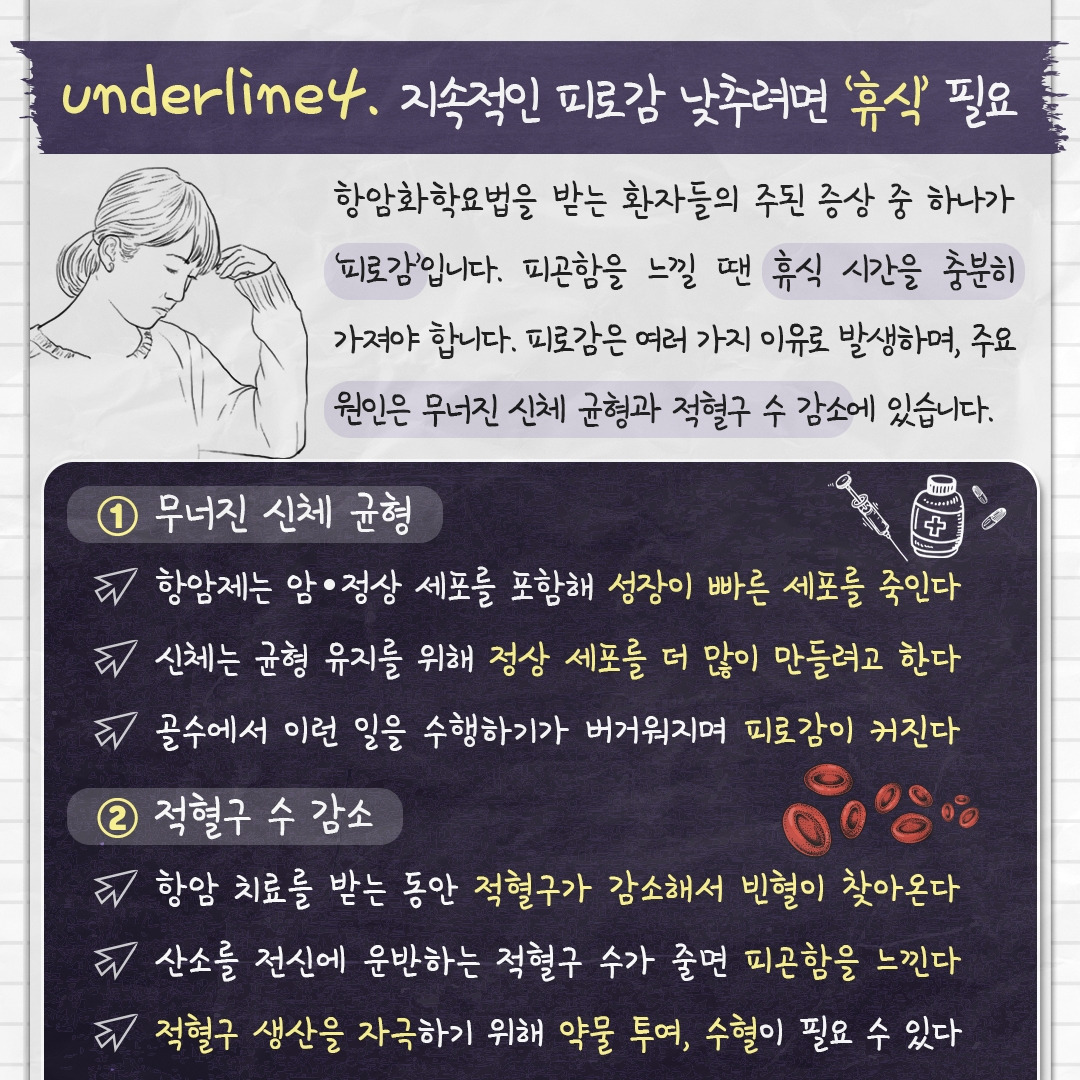 underline4. 지속적인 피로감 낮추려면 ‘휴식’ 필요
항암화학요법을 받는 환자들의 주된 증상 중 하나가
‘피로감’입니다. 피곤함을 느낄 땐 휴식 시간을 충분히
가져야 합니다. 피로감은 여러 가지 이유로 발생하며, 주요
원인은 무너진 신체 균형과 적혈구 수 감소에 있습니다.
① 무너진 신체 균형
항암제는 암•정상 세포를 포함해 성장이 빠른 세포를 죽인다
신체는 균형 유지를 위해 정상 세포를 더 많이 만들려고 한다
골수에서 이런 일을 수행하기가 버거워지며 피로감이 커진다
② 적혈구 수 감소
항암 치료를 받는 동안 적혈구가 감소해서 빈혈이 찾아온다
산소를 전신에 운반하는 적혈구 수가 줄면 피곤함을 느낀다
적혈구 생산을 자극하기 위해 약물 투여, 수혈이 필요 수 있다